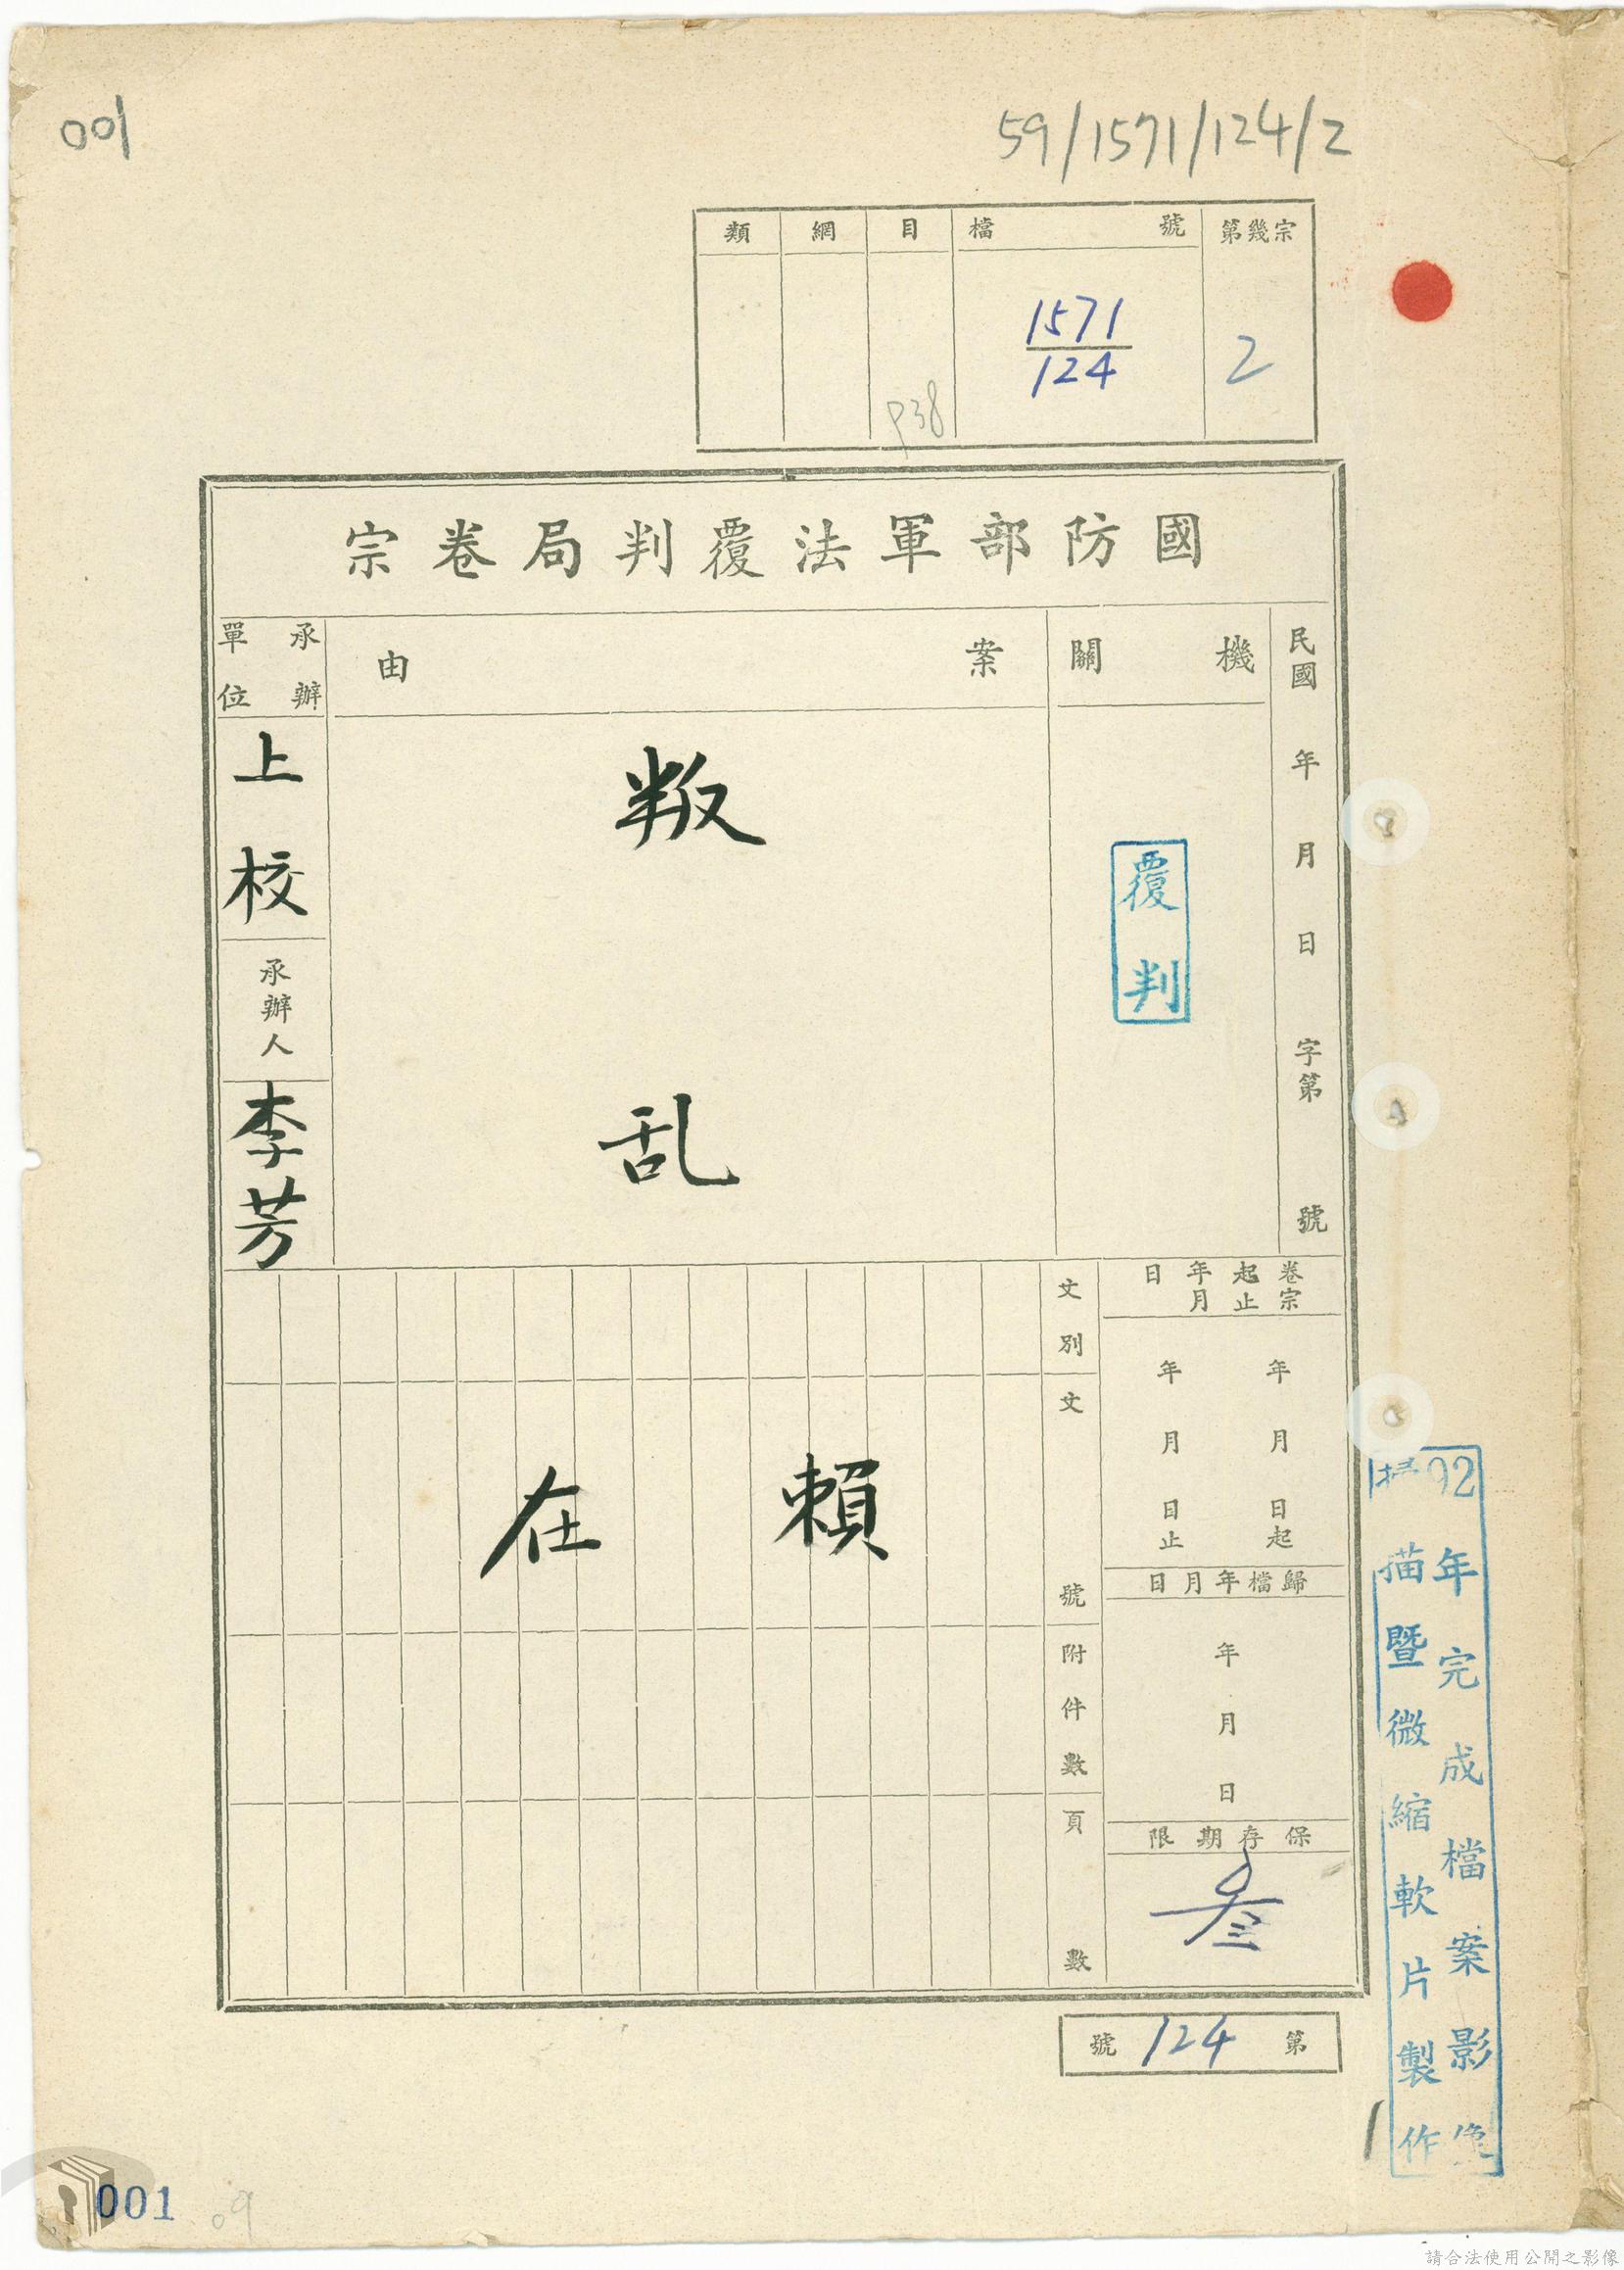 001
59/1571/124/2
類 綱 目 檔號 第幾宗
1571
124
2
P38
國防部軍法覆判局卷宗
民國 年 月 日 字第 號
機關
覆判
案由
叛乱
承辦單位
上校
承辦人
李芳
卷宗起止年月日
年 月 日起
年 月 日止
歸檔年月日
年 月 日
保存期限
叁
文別
文號
附件數
頁數
賴在
第 124 號
92年完成檔案影像
掃描暨微縮軟片製作
001
09
請合法使用公開之影像